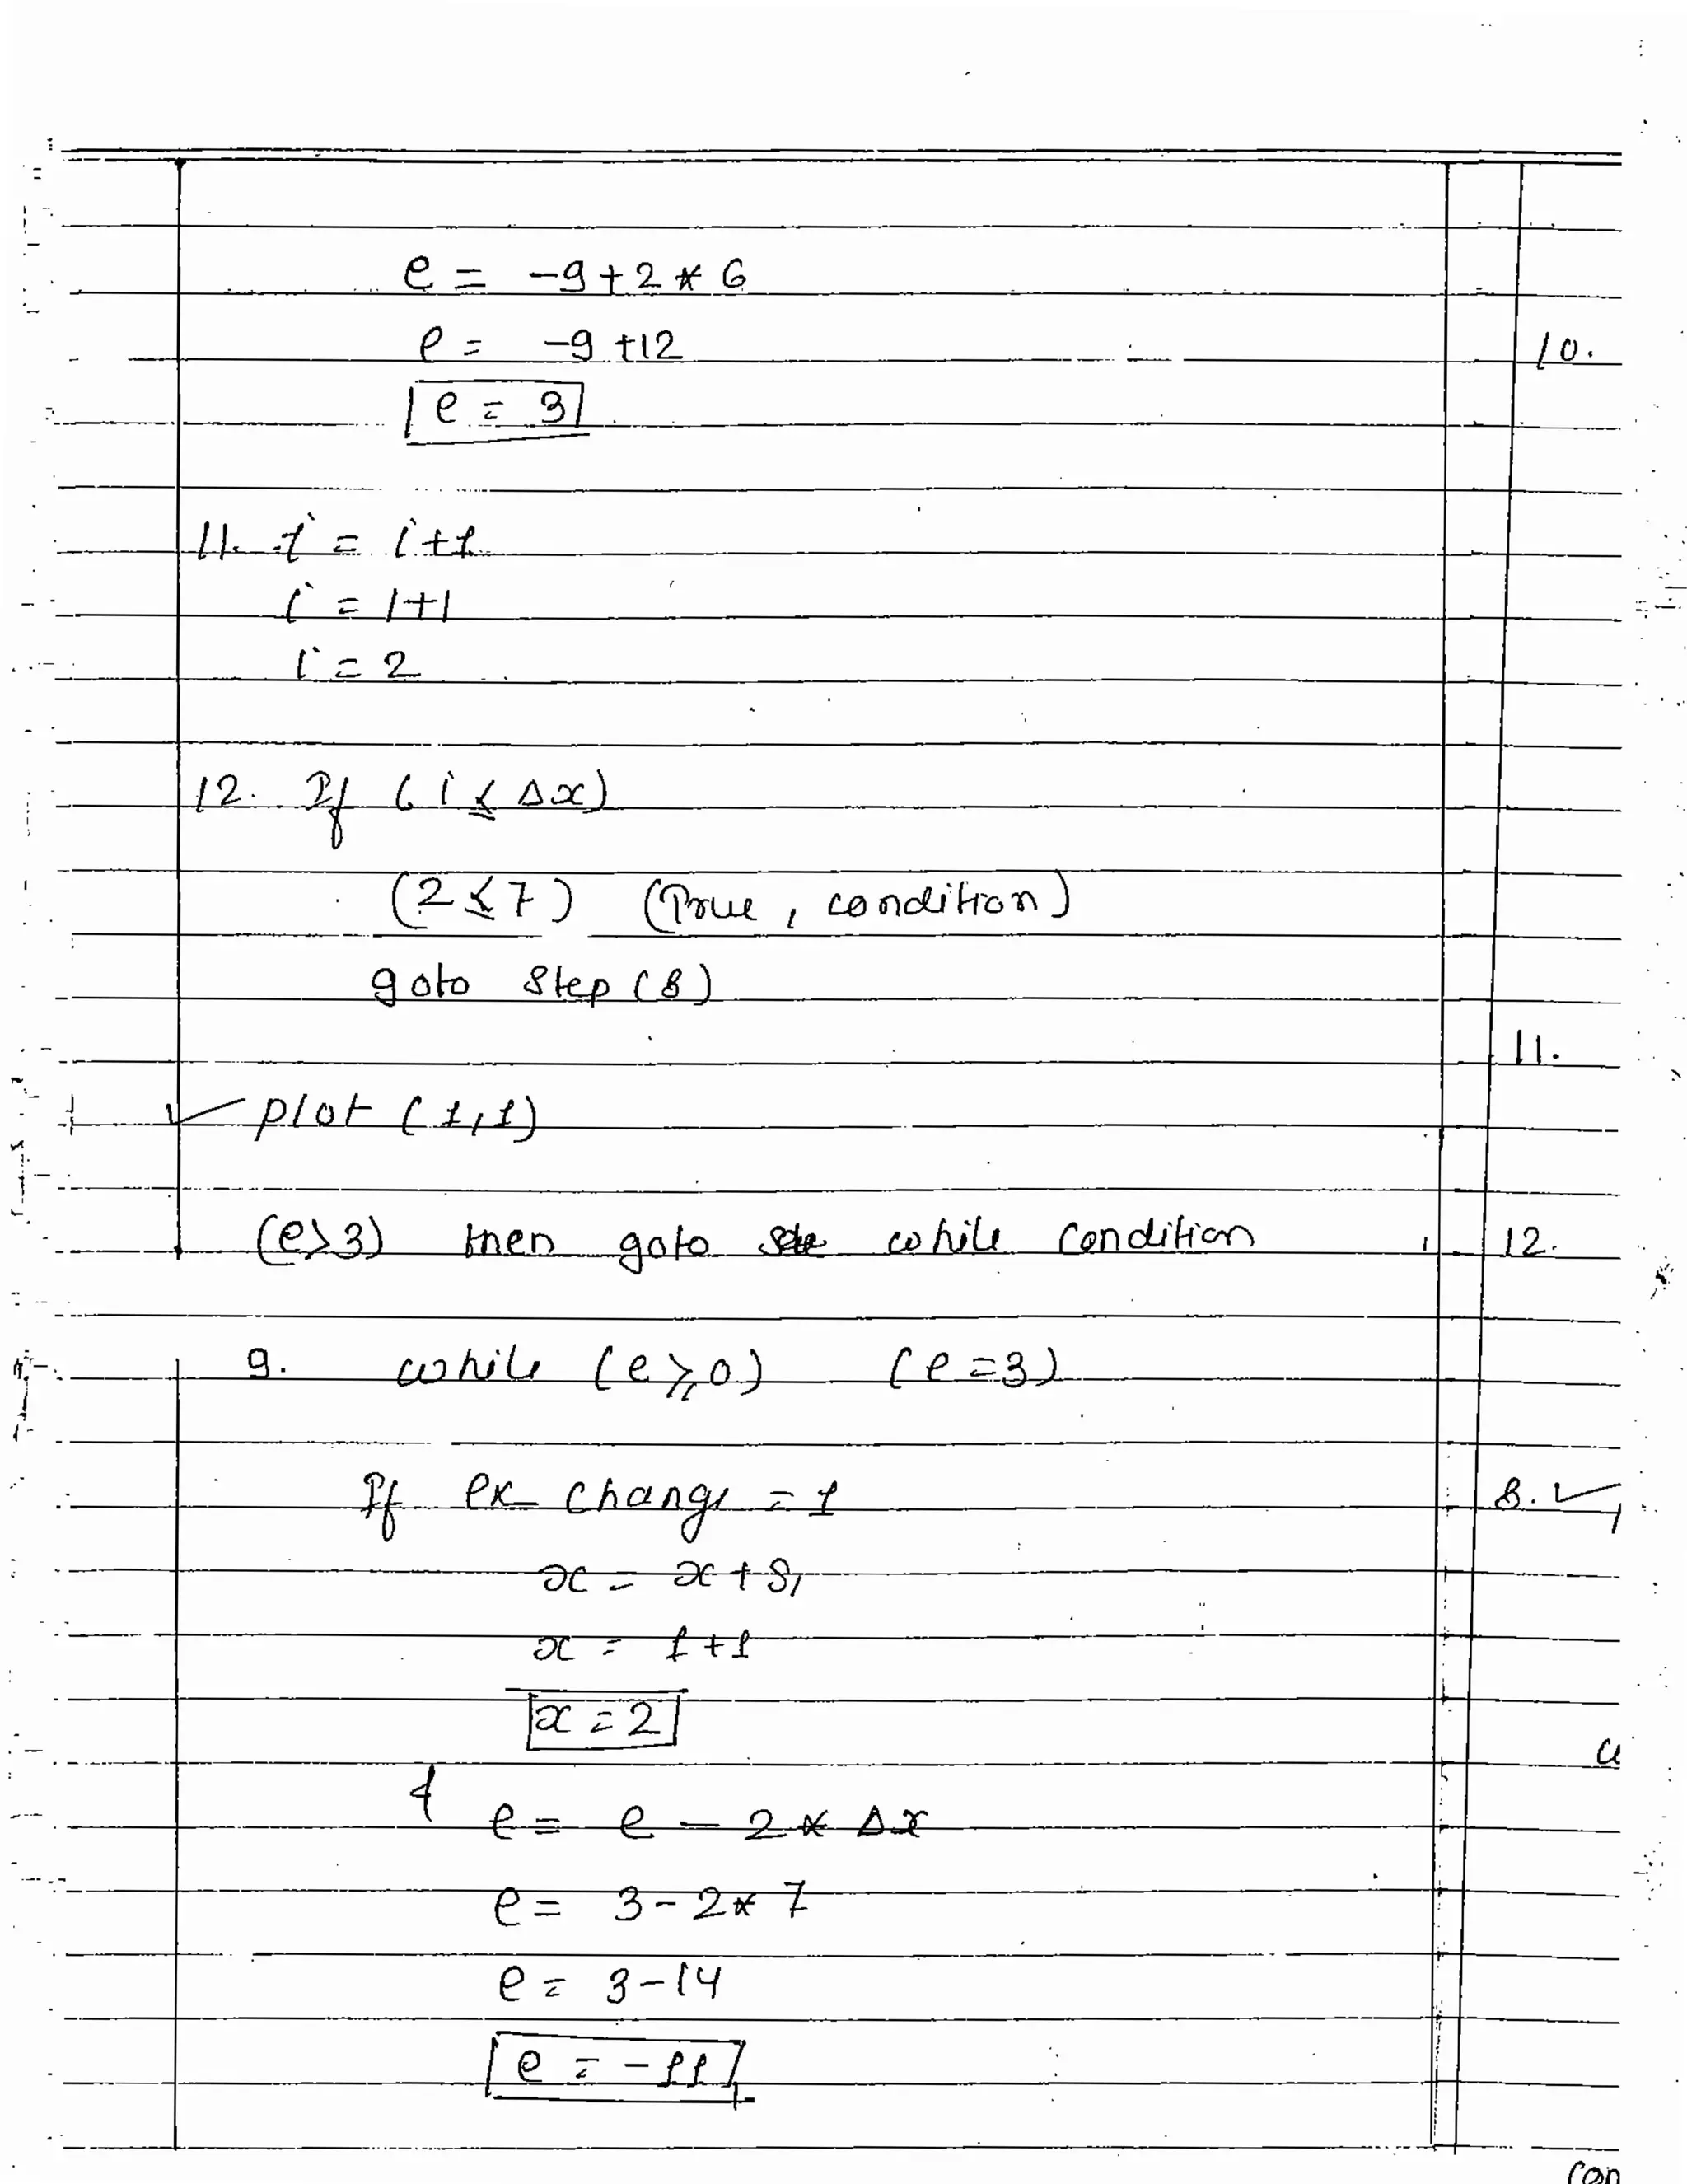 e = -9+2*6
e = -9+12
e = 3
11. i = i+1
i = 1+1
i = 2
12. If (i ≤ Δx)
(2 ≤ 7) (True, condition)
goto Step (8)
✓ plot (1,1)
(e>3) then goto while condition
9. while (e ≥ 0) (e = 3)
If ex change = 1
x = x + S1
x = 1+1
x = 2
&
e = e - 2 * Δx
e = 3-2*7
e = 3-14
e = -11
10.
11.
12.
8. ✓